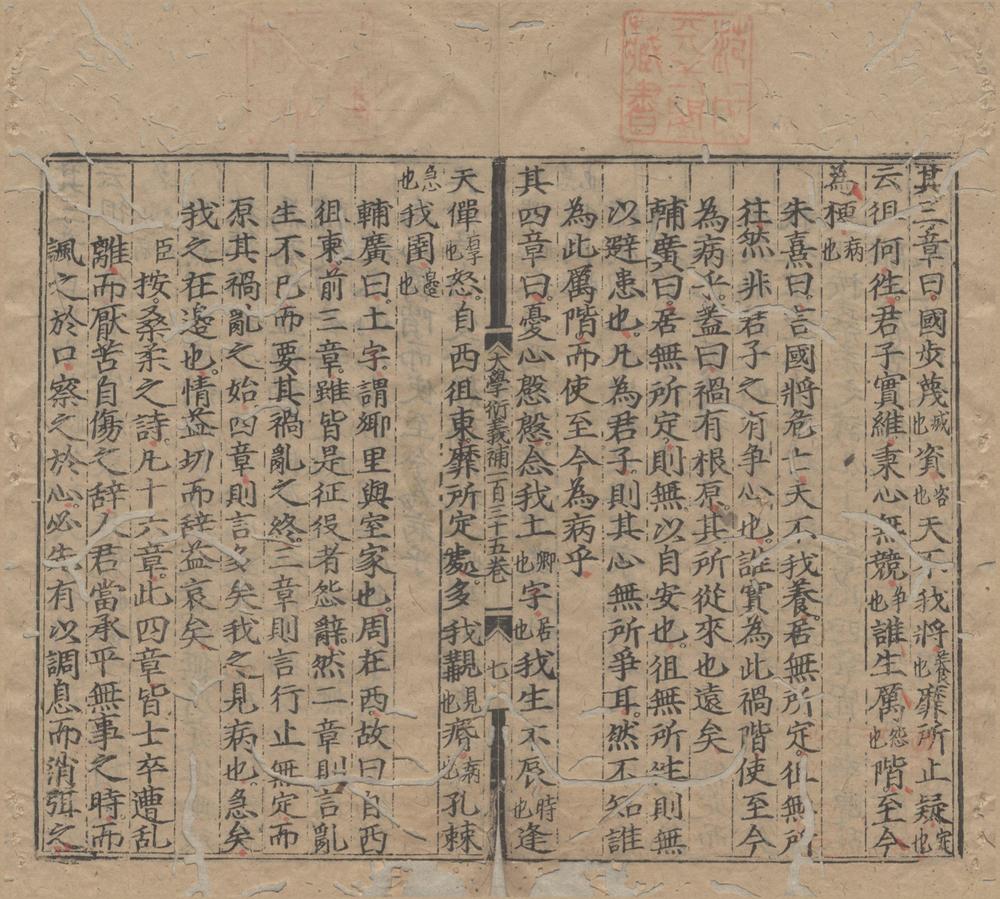 其三章曰國步蔑滅也資咨也天不我將養也靡所止疑定也
云徂何往君子實維秉心無競爭也誰生厲怨也階至今
為梗病也
朱熹曰言國將危亡天不我養居無所定徂無所
往然非君子之有爭心也誰實為此禍階使至今
為病乎蓋曰禍有根原其所從來也遠矣
輔廣曰居無所定則無以自安也徂無所往則無
以避患也凡為君子則其心無所爭耳然不知誰
為此厲階而使至今為病乎
其四章曰憂心慇慇念我土鄉也宇居也我生不辰時也逢
天僤厚也怒自西徂東靡所定處多我覯見也痻病也孔棘
急也我圉邊也
輔廣曰土宇謂鄉里與室家也周在西故曰自西
徂東前三章雖皆是征役者怨辭然二章則言亂
生不已而要其禍亂之終三章則言行止無定而
原其禍亂之始四章則言多矣我之見病也急矣
我之在邊也情益切而辞益哀矣
臣按桑柔之詩凡十六章此四章皆士卒遭乱
離而厭苦自傷之辞人君當承平無事之時而
諷之於口察之於心必先有以調息而消弭之
大學衍義補一百三十五卷
七